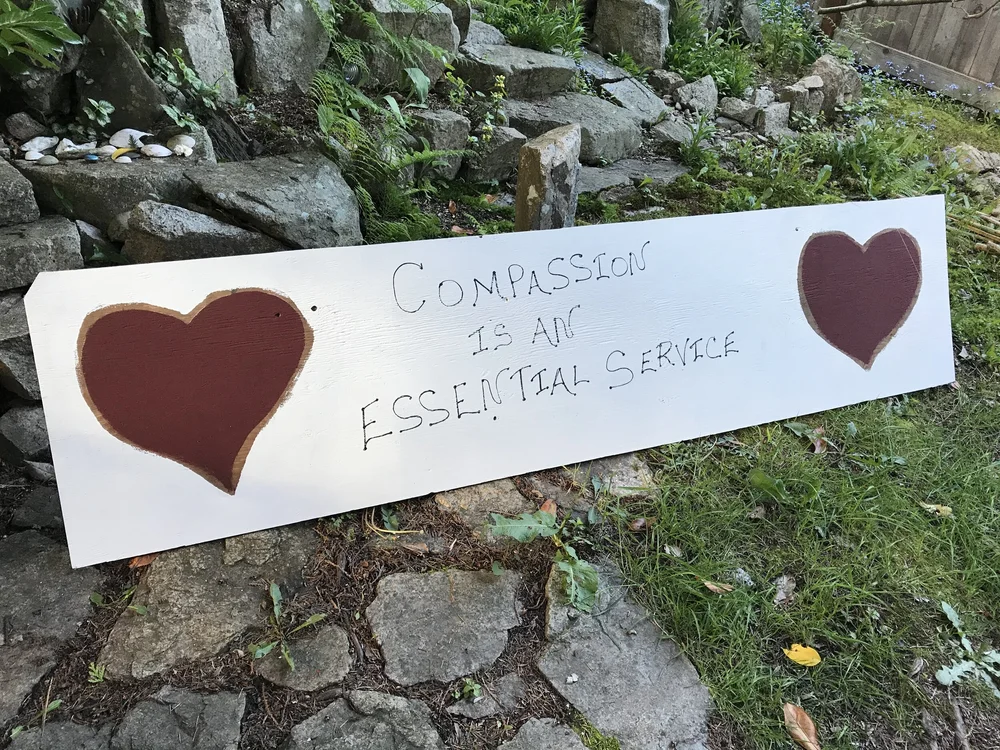 COMPASSION
IS AN
ESSENTIAL SERVICE